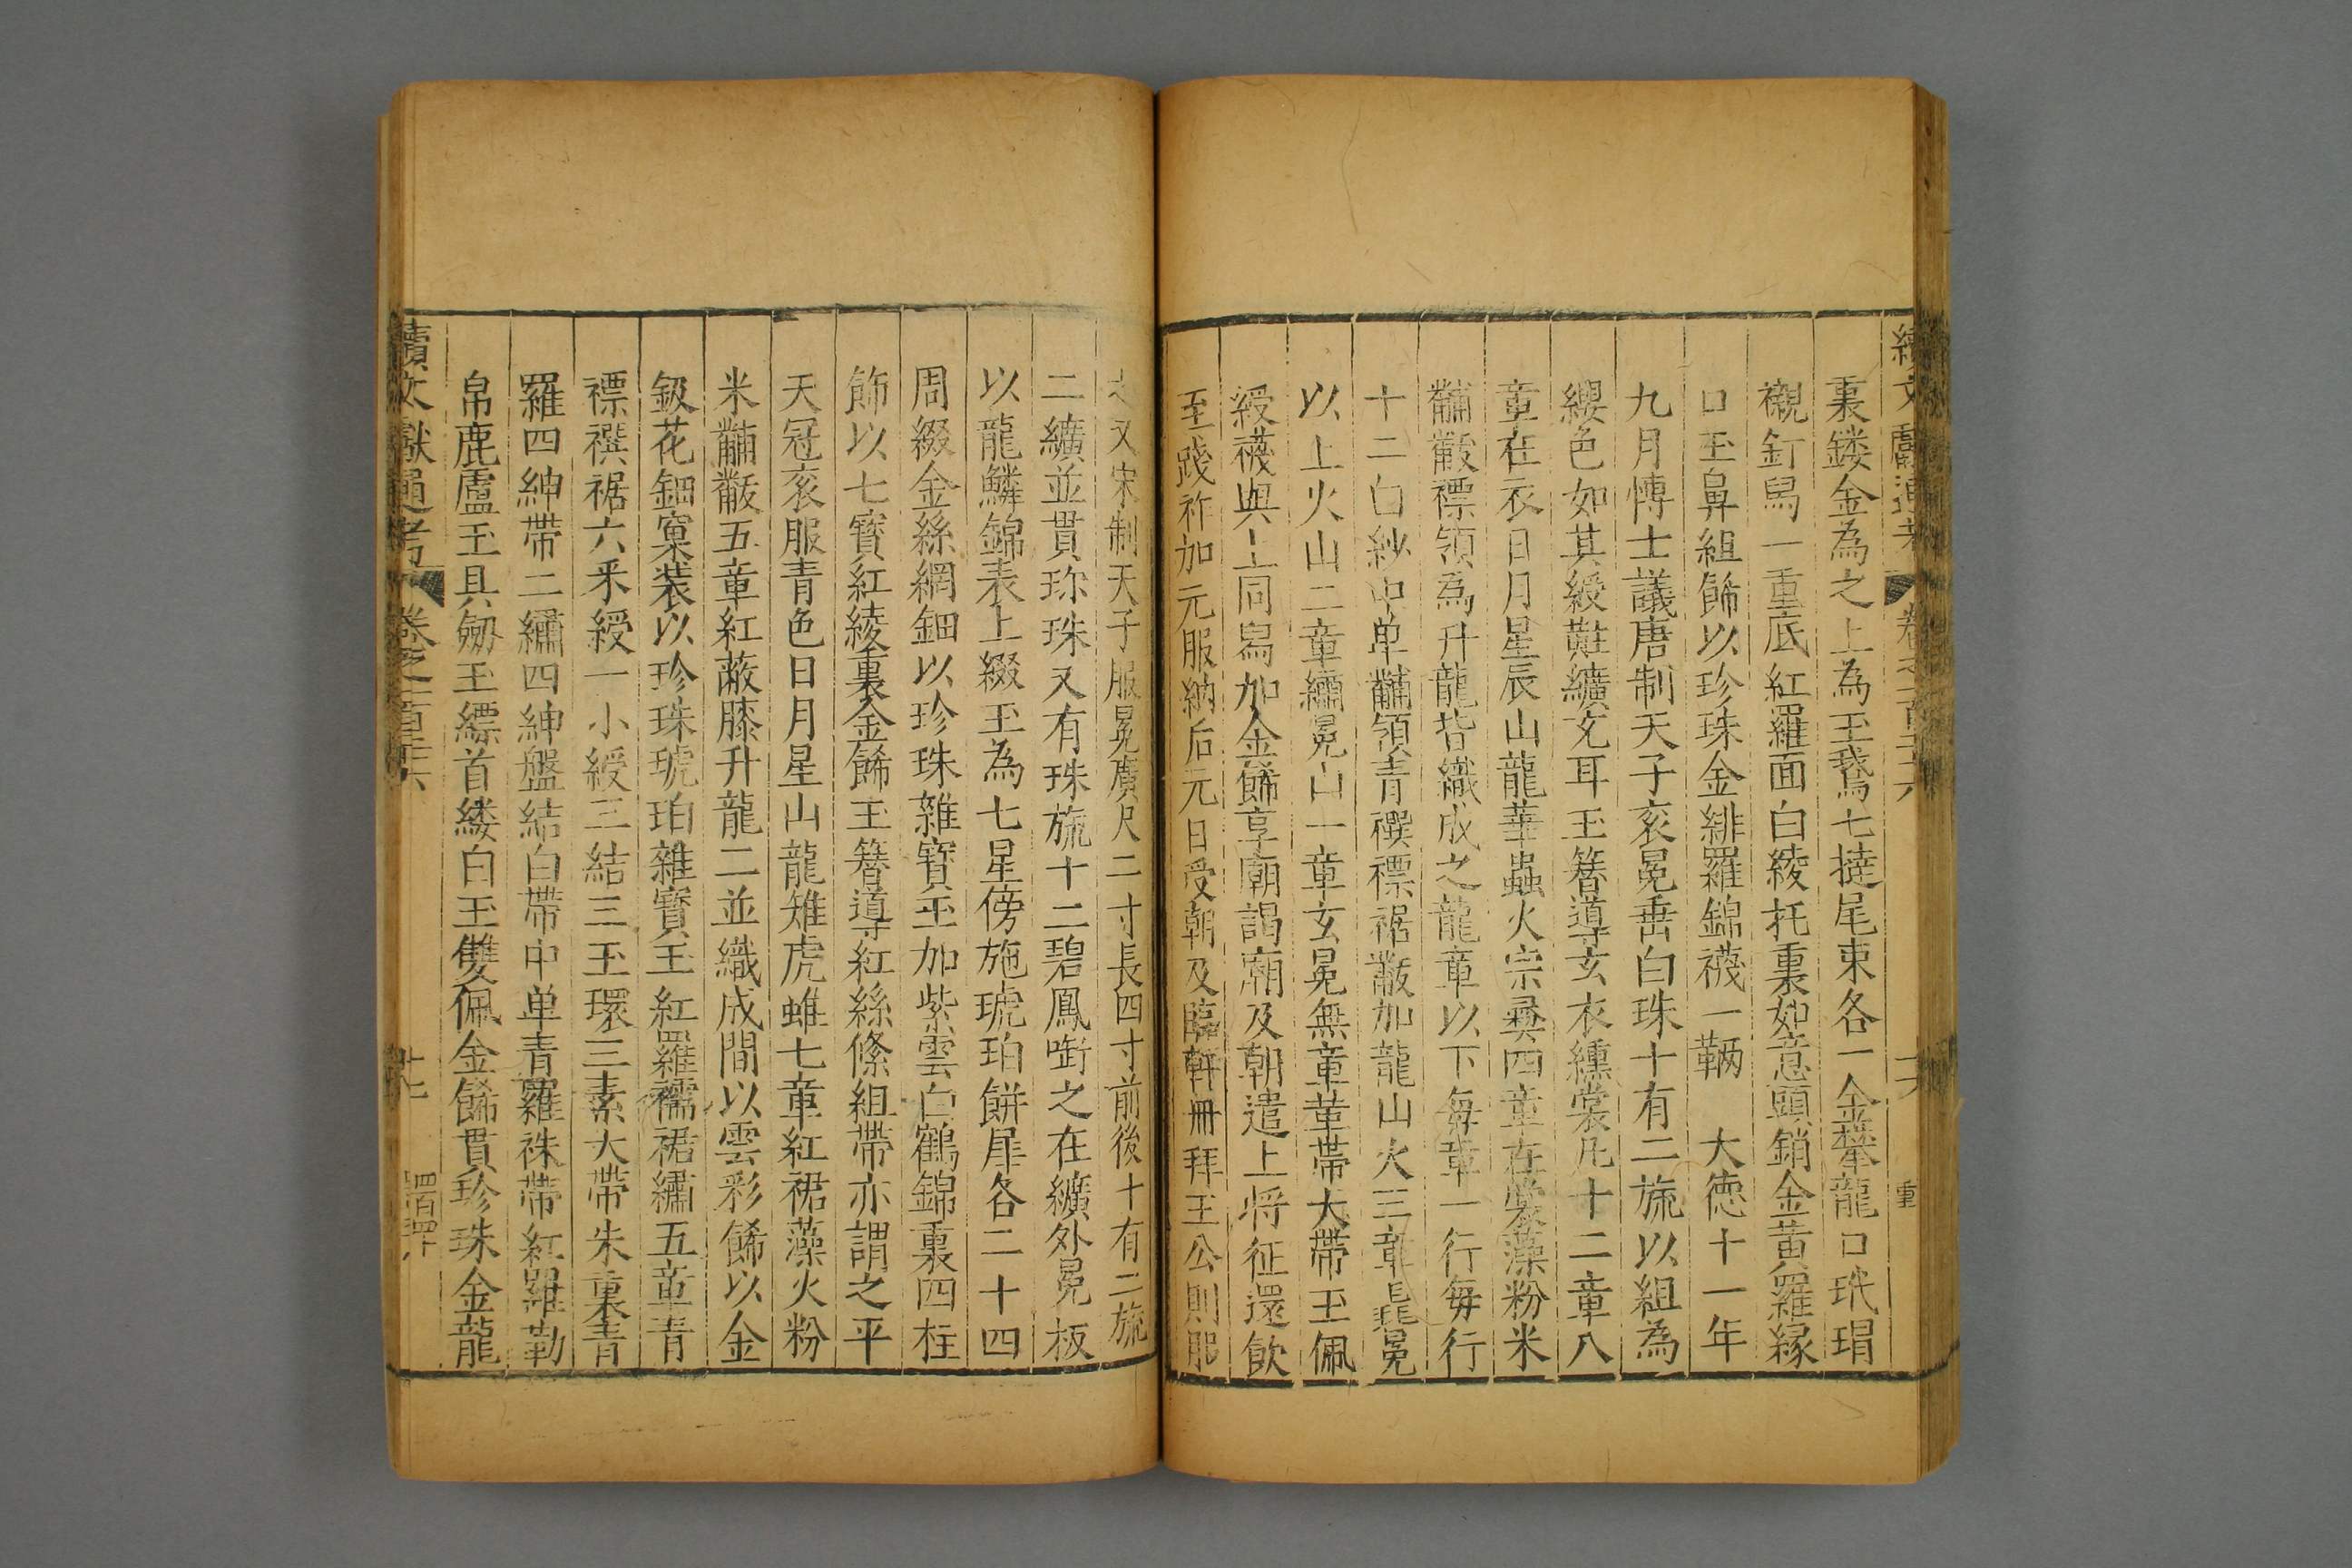 續文獻通考 卷之一百二十六 十六 重
裏鏤金為之上為玉鵞七撻尾束各一金攀龍口玳瑁
襯釘舄一重底紅羅面白綾托裏如意頭銷金黃羅緣
口玉鼻組餙以珍珠金緋羅錦襪一䩫 大德十一年
九月博士議唐制天子衮冕垂白珠十有二旒以組為
纓色如其綬黈纊充耳玉簪導玄衣纁裳凡十二章八
章在衣日月星辰山龍華蟲火宗彞四章在裳藻粉米
黼黻褾領為升龍皆織成之龍章以下每章一行每行
十二白紗中单黼領青襈褾裾黻加龍山火三章毳冕
以上火山二章繡冕山一章玄冕無章革帶大帶玉佩
綬襪與上同舄加金餙享廟謁廟及朝遣上將征還飲
至踐祚加元服納后元日受朝及臨軒冊拜王公則服
之又宋制天子服冕廣尺二寸長四寸前後十有二旒
二纊並貫珎珠又有珠旒十二碧鳳啣之在纊外冕板
以龍鱗錦表上綴玉為七星傍施琥珀餠犀各二十四
周綴金絲網鈿以珍珠雜寶玉加紫雲白鶴錦裏四柱
飾以七寶紅綾裏金餙玉簪導紅絲絛組帶亦謂之平
天冠衮服青色日月星山龍雉虎蜼七章紅裙藻火粉
米黼黻五章紅蔽膝升龍二並織成間以雲彩餙以金
鈒花鈿窠装以珍珠琥珀雜寶玉紅羅襦裙繡五章青
褾襈裾六采綬一小綬三結三玉環三素大帶朱裏青
羅四紳帶二繡四紳盤結白帶中单青羅袾帶紅羅勒
帛鹿盧玉具劒玉縹首縷白玉雙佩金餙貫珍珠金龍
續文獻通考 卷之一百二十六 十七